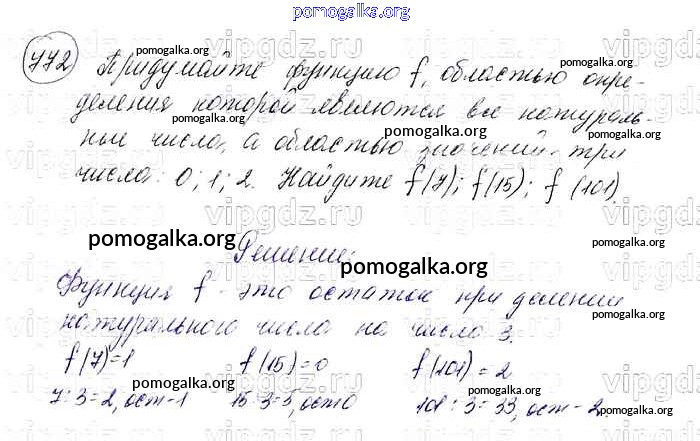 pomogalka.org
772 Придумайте функцию f, областью опре-
деления которой являются все натураль-
ные числа, а областью значений - три
числа: 0; 1; 2. Найдите f(7); f(15); f(101).
Решение:
Функция f - это остаток при делении
натурального числа на число 3.
f(7)=1 f(15)=0 f(101)=2
7:3=2, ост-1 15:3=3, ост 0 101:3=33, ост-2.
pomogalka.org
pomogalka.org
pomogalka.org
pomogalka.org
pomogalka.org
pomogalka.org
pomogalka.org
pomogalka.org
pomogalka.org
pomogalka.org
pomogalka.org